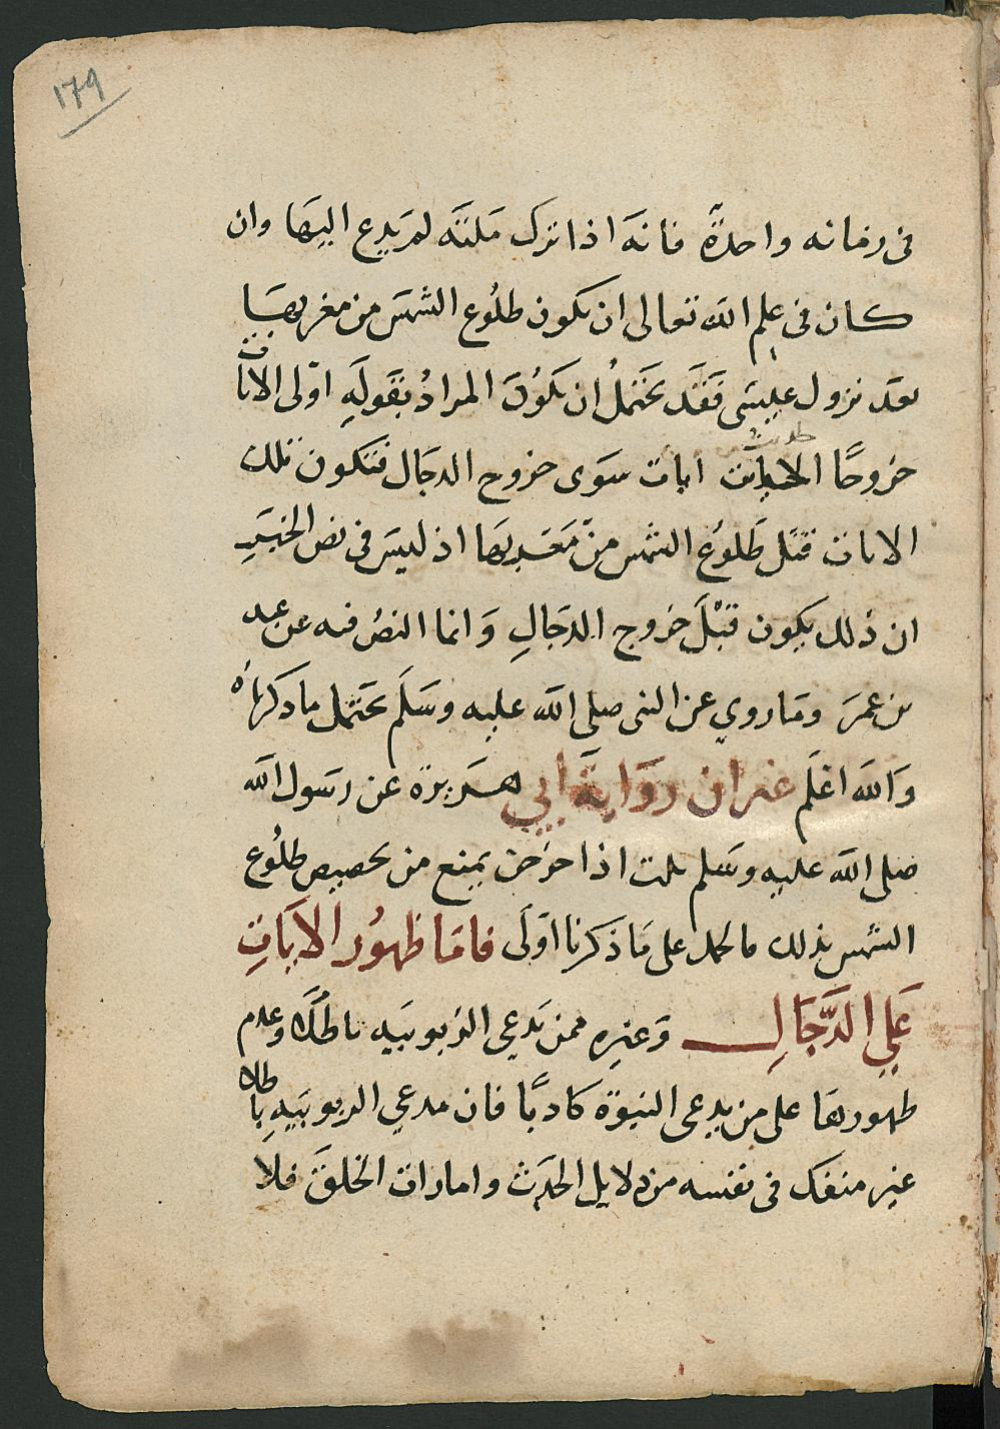 ١٧٩
في زمانه واحدة فانه اذا ترك ملته لم يدع اليها وان
كان في علم الله تعالى ان يكون طلوع الشمس من مغربها
بعد نزول عيسى فقد يحتمل ان يكون المراد بقوله اولى الايات
خروجا الايات ايات سوى خروج الدجال فتكون تلك
الايات قبل طلوع الشمس من مغربها اذ ليس في نص الخبر
ان ذلك يكون قبل خروج الدجال وانما النص فيه عن عبد
بن عمر وما روي عن النبي صلى الله عليه وسلم يحتمل ما ذكرناه
والله اعلم غير ان رواية ابي هريرة عن رسول الله
صلى الله عليه وسلم ثلث اذا خرجن يمنع من تخصيص طلوع
الشمس بذلك فالحمل على ما ذكرنا اولى فاما ظهور الايات
على الدجال وغيره ممن يدعي الربوبيه باطلا وعدم
ظهورها على من يدعي النبوة كاذبا فان مدعي الربوبيه باطلا
غير منفك في نفسه من دلايل الحدث وامارات الخلق فلا